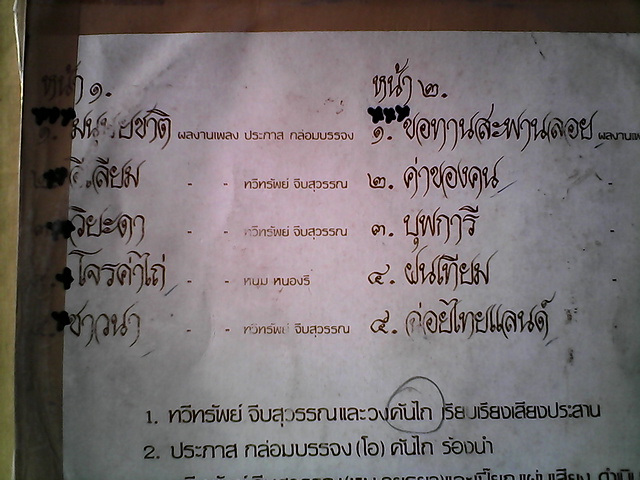 หน้า ๑.
มนุษยชาติ ผลงานเพลง ประภาส กล่อมบรรจง
ลียม - - ทวีทรัพย์ จีบสุวรรณ
วิยะดา - - ทวีทรัพย์ จีบสุวรรณ
โจรค้าไถ่ - - หนุ่ม หนองรี
ชาวนา - - ทวีทรัพย์ จีบสุวรรณ
หน้า ๒.
๑. ขอทานสะพานลอย ผลงานเพ
๒. ค่าของคน -
๓. บุพการี -
๔. ฝนเทียม -
๕. ค่อยไทยแลนด์ -
1. ทวีทรัพย์ จีบสุวรรณและวงคันไถ เรียบเรียงเสียงประสาน
2. ประภาส กล่อมบรรจง (โอ) คันไถ ร้องนำ